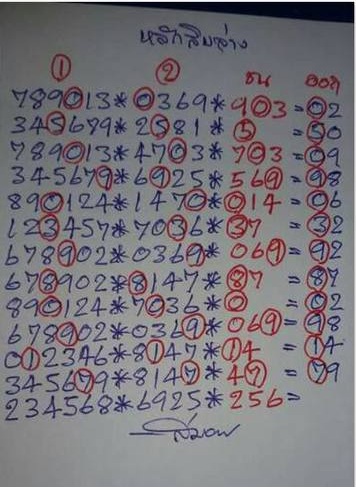 หลักสิบล่าง
1 2 ชน ออก
789013*0369*903=02
345679*2581*5=50
789013*4703*703=09
345679*6925*569=98
890124*1470*014=06
123457*7036*37=32
678902*0369*069=92
678902*8147*87=87
890124*7036*0=02
678902*0369*069=98
012346*8147*14=14
345679*8147*47=79
234568*6925*256=